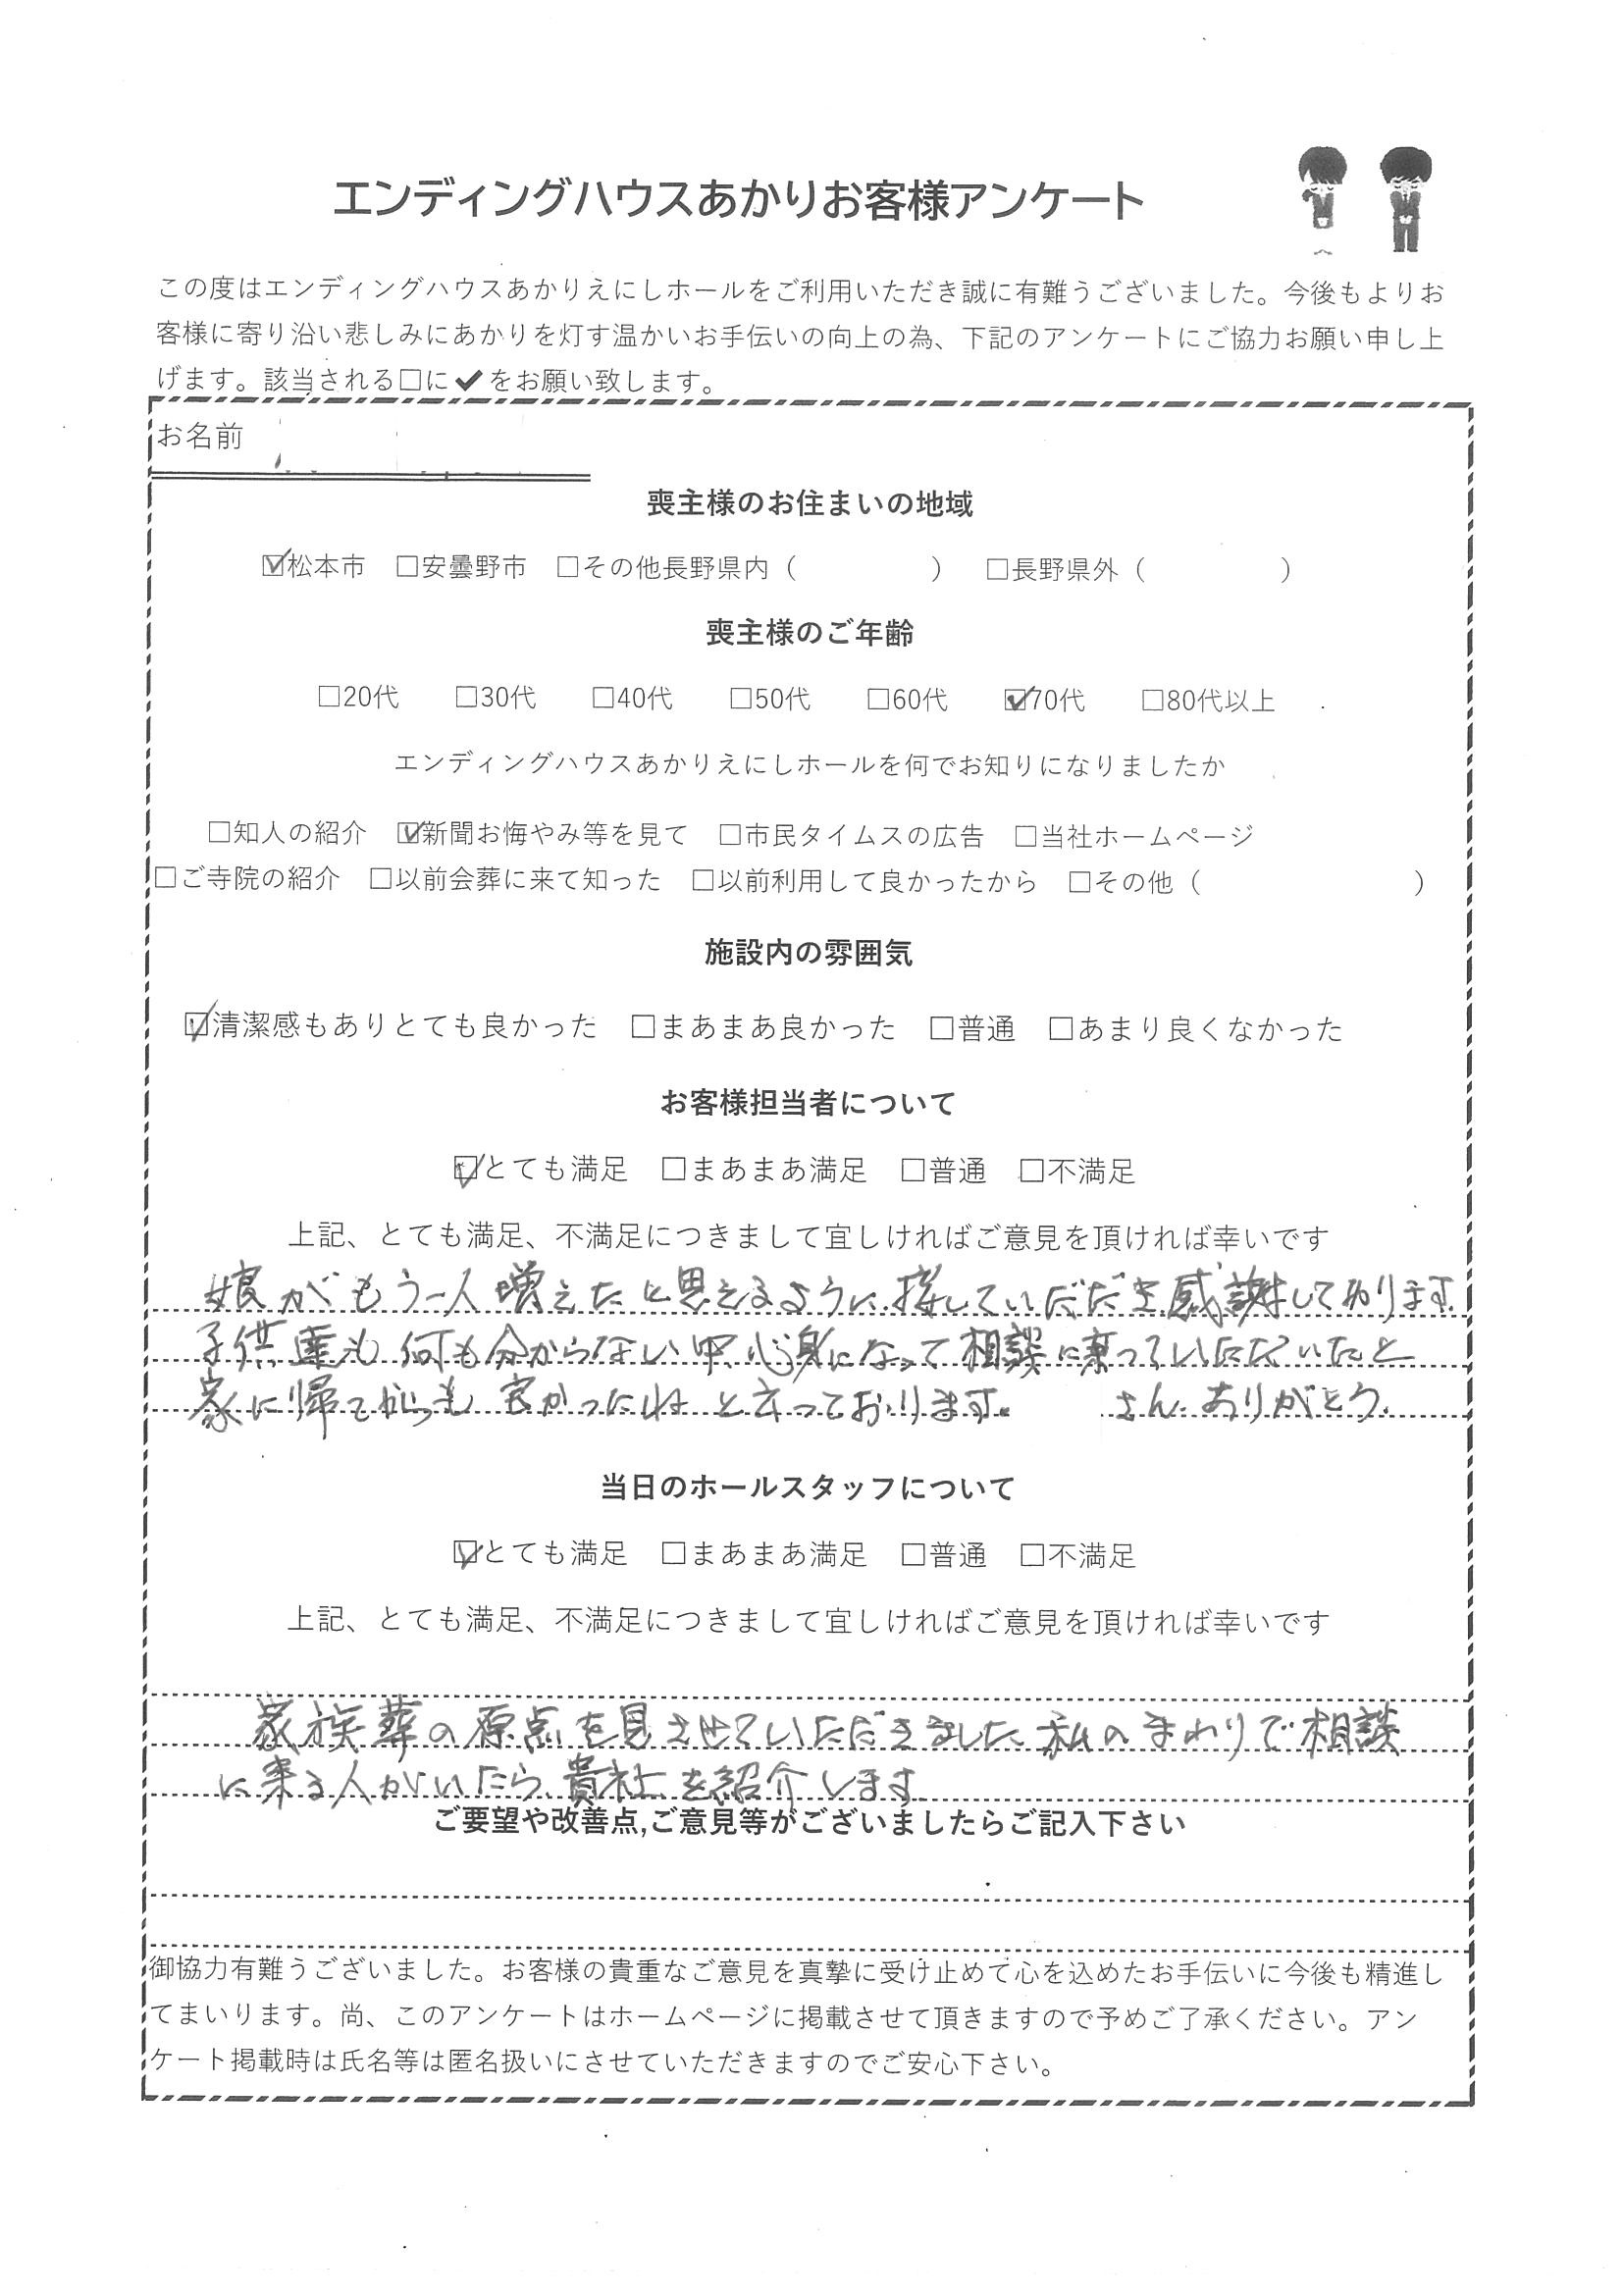 エンディングハウスあかりお客様アンケート
この度はエンディングハウスあかりえにしホールをご利用いただき誠に有難うございました。今後もよりお
客様に寄り沿い悲しみにあかりを灯す温かいお手伝いの向上の為、下記のアンケートにご協力お願い申し上
げます。該当される□に✔をお願い致します。
お名前
喪主様のお住まいの地域
☑松本市 □安曇野市 □その他長野県内（ ） □長野県外（ ）
喪主様のご年齢
□20代 □30代 □40代 □50代 □60代 ☑70代 □80代以上
エンディングハウスあかりえにしホールを何でお知りになりましたか
□知人の紹介 ☑新聞お悔やみ等を見て □市民タイムスの広告 □当社ホームページ
□ご寺院の紹介 □以前会葬に来て知った □以前利用して良かったから □その他（ ）
施設内の雰囲気
☑清潔感もありとても良かった □まあまあ良かった □普通 □あまり良くなかった
お客様担当者について
☑とても満足 □まあまあ満足 □普通 □不満足
上記、とても満足、不満足につきまして宜しければご意見を頂ければ幸いです
娘がもう一人増えたと思えるように接していただき感謝しております.
子供達も何も分からない中心身になって相談に乗っていただいたと
家に帰てからも良かったねと言っております。 さんありがとう.
当日のホールスタッフについて
☑とても満足 □まあまあ満足 □普通 □不満足
上記、とても満足、不満足につきまして宜しければご意見を頂ければ幸いです
家族葬の原点を見させていただきました 私のまわりで相談
に来る人がいたら貴社を紹介します
ご要望や改善点,ご意見等がございましたらご記入下さい
御協力有難うございました。お客様の貴重なご意見を真摯に受け止めて心を込めたお手伝いに今後も精進し
てまいります。尚、このアンケートはホームページに掲載させて頂きますので予めご了承ください。アン
ケート掲載時は氏名等は匿名扱いにさせていただきますのでご安心下さい。